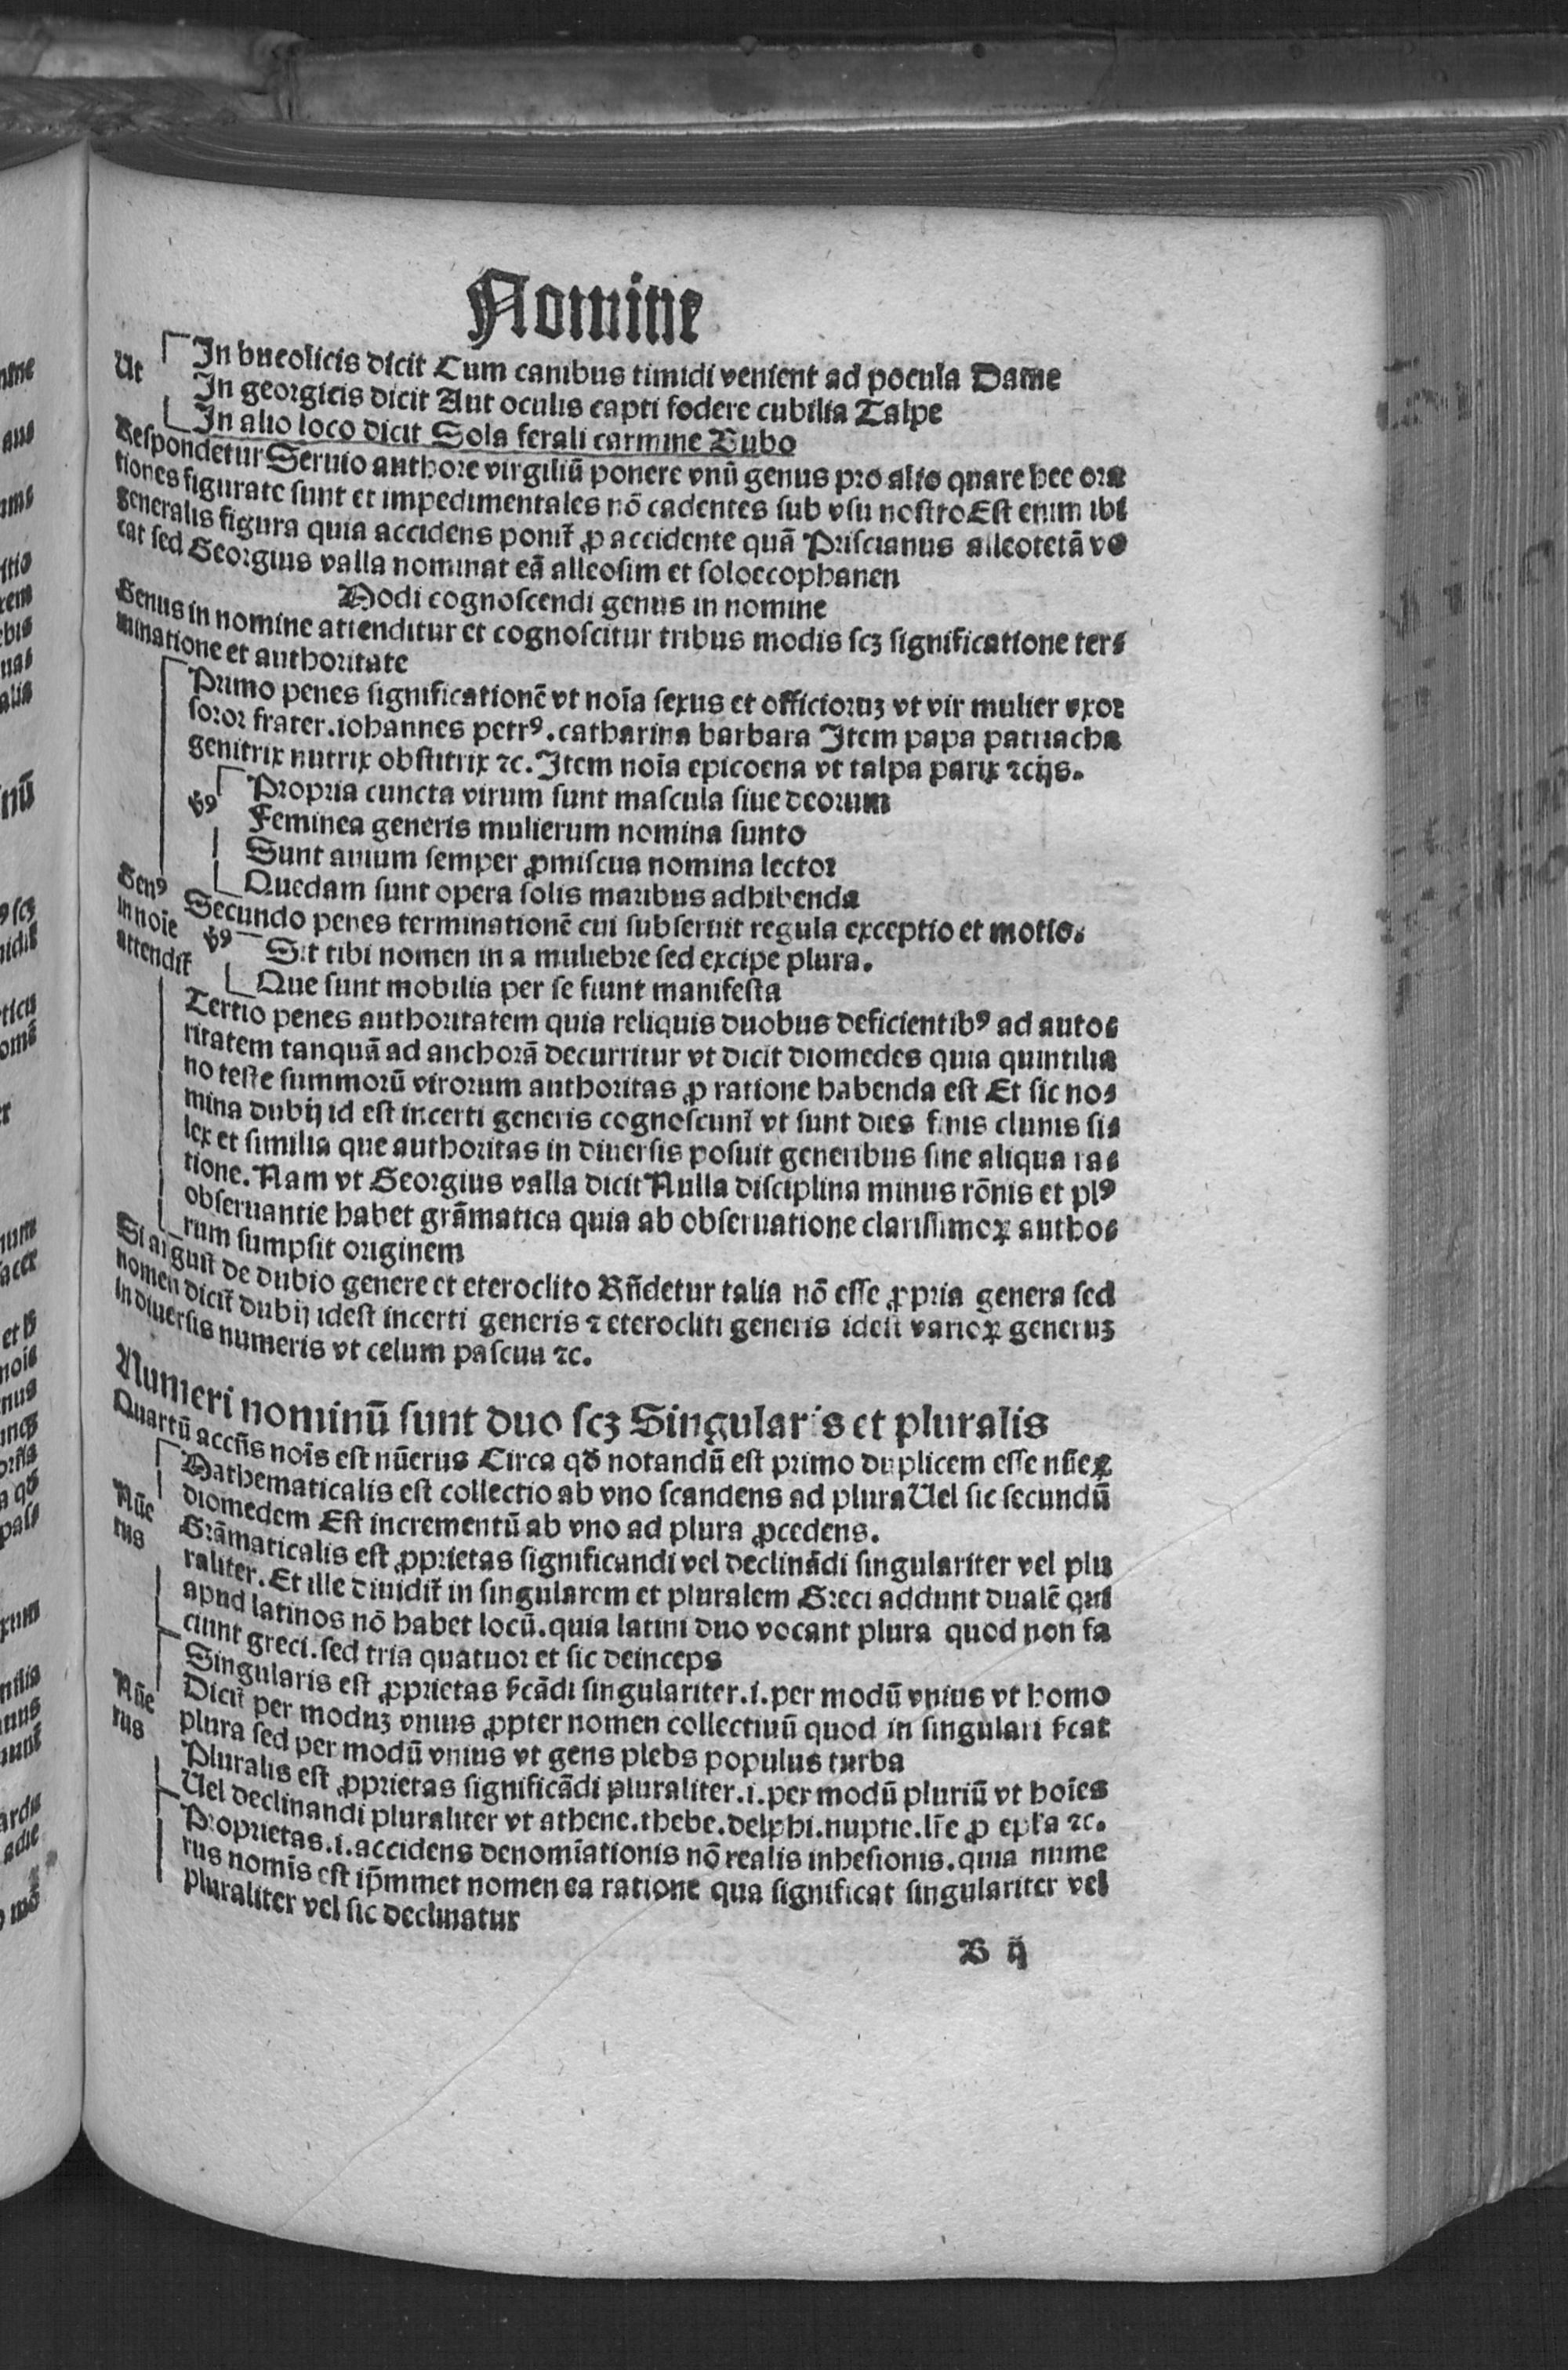 Nomine
Ut
In bucolicis dicit Cum canibus timidi venient ad pocula Dame
In georgicis dicit Aut oculis capti fodere cubilia Talpe
In alio loco dicit Sola ferali carmine Bubo
Respondetur Seruio authore virgiliū ponere vnū genus pro alio quare hec ora
tiones figurate sunt et impedimentales nō cadentes sub vsu nostro Est enim ibi
generalis figura quia accidens ponit̄ ꝓ accidente quā Priscianus alleotetā vo
cat sed Georgius valla nominat eā alleosim et soloecophanen
Modi cognoscendi genus in nomine
Genus in nomine attenditur et cognoscitur tribus modis scꝫ significatione ter⸗
minatione et authoritate
Primo penes significationē vt noīa sexus et officioruꝫ vt vir mulier vxor
soror frater.iohannes petrꝰ.catharina barbara Item papa patriacha
genitrix nutrix obstitrix ⁊c.Item noīa epicoena vt talpa parix ⁊cijs.
Propria cuncta virum sunt mascula siue deorum
Vꝰ
Feminea generis mulierum nomina sunto
Sunt auium semper ꝓmiscua nomina lector
Quedam sunt opera solis maribus adhibenda
Genꝰ
in noīe
attendit̄
Secundo penes terminationē cui subseruit regula exceptio et motio.
Vꝰ
Sit tibi nomen in a muliebre sed excipe plura.
Que sunt mobilia per se fiunt manifesta
Tertio penes authoritatem quia reliquis duobus deficientibꝰ ad auto⸗
ritatem tanquā ad anchorā decurritur vt dicit diomedes quia quintilia
no teste summorū virorum authoritas ꝓ ratione habenda est Et sic no⸗
mina dubij id est incerti generis cognoscunt̄ vt sunt dies finis clunis si⸗
lex et similia que authoritas in diuersis posuit generibus sine aliqua ra⸗
tione.Nam vt Georgius valla dicit Nulla disciplina minus rōnis et plꝰ
obseruantie habet grāmatica quia ab obseruatione clarissimoꝝ autho⸗
rum sumpsit originem
Si arguit̄ de dubio genere et eteroclito Rn̄detur talia nō esse ꝓpria genera sed
nomen dicit̄ dubij idest incerti generis ⁊ eterocliti generis idest varioꝝ generuꝫ
in diuersis numeris vt celum pascua ⁊c.
Numeri nominū sunt duo scꝫ Singularis et pluralis
Quartū accn̄s nois est nūerus Circa qđ notandū est primo duplicem esse nūeꝝ
Nūe
rus
Mathematicalis est collectio ab vno scandens ad plura Uel sic secundū
diomedem Est incrementū ab vno ad plura ꝓcedens.
Grāmaticalis est ꝓprietas significandi vel declinādi singulariter vel plu
raliter.Et ille diuidit̄ in singularem et pluralem Greci addunt dualē qui
apud latinos nō habet locū.quia latini duo vocant plura quod non fa
ciunt greci.sed tria quatuor et sic deinceps
Nūe
rus
Singularis est ꝓprietas sc̄ādi singulariter.i.per modū vnius vt homo
Dicit̄ per moduꝫ vnius ꝓpter nomen collectiuū quod in singulari sc̄at
plura sed per modū vnius vt gens plebs populus turba
Pluralis est ꝓprietas significādi pluraliter.i.per modū pluriū vt hoīes
Uel declinandi pluraliter vt athene.thebe.delphi.nuptie.lr̄e ꝓ epl̄a ⁊c.
Proprietas.i.accidens denomīationis nō realis inhesionis.quia nume
rus nomīs est ip̄mmet nomen ea ratione qua significat singulariter vel
pluraliter vel sic declinatur
B ij